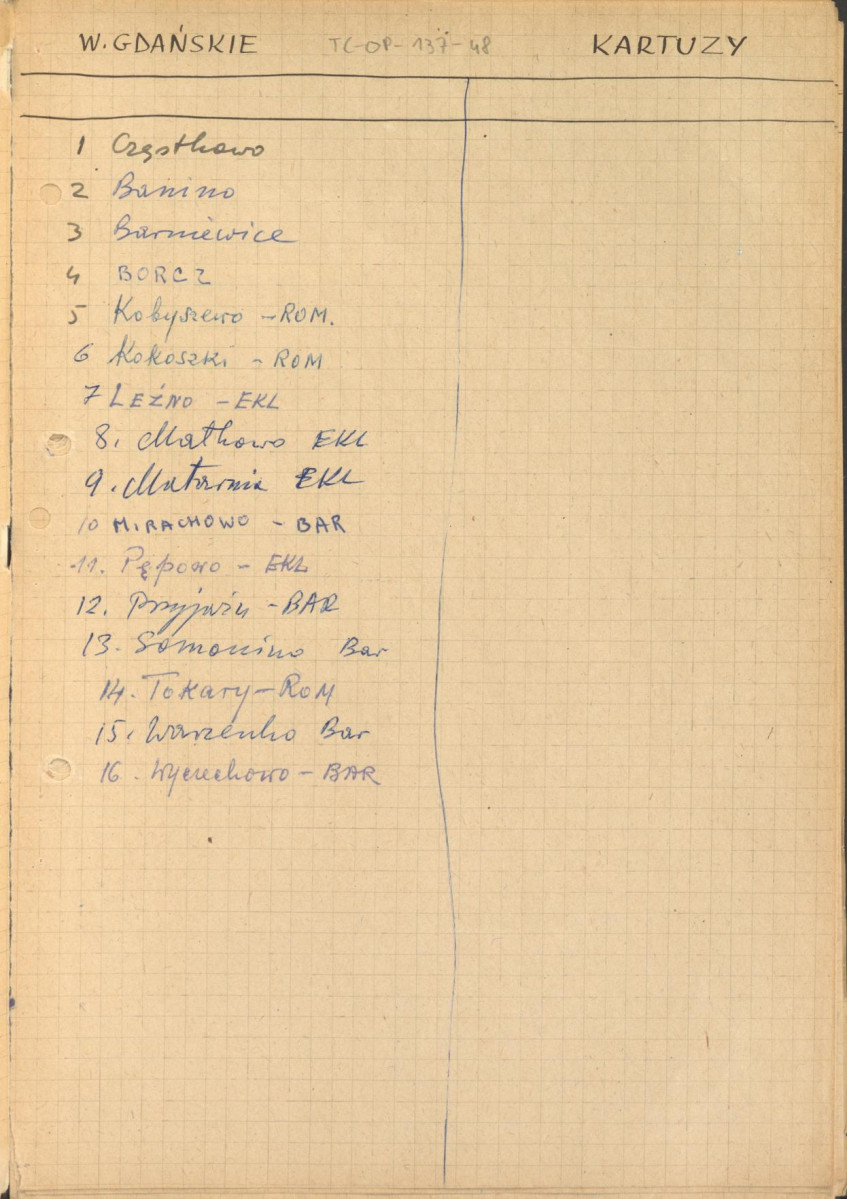 W. GDAŃSKIE TC-OP-137-48 KARTUZY
1 Częstkowo
2 Banino
3 Barniewice
4 BORCZ
5 Kobyszewo - ROM.
6 Kokoszki - ROM
7 LEŹNO - EKL
8. Matkowo EKL
9. Matarnia EKL
10 MIRACHOWO - BAR
11. Pępowo - EKL
12. Przyjaźń - BAR
13. Somonino Bar
14. Tokary - ROM
15. Warzenko Bar
16. Wyczechowo - BAR